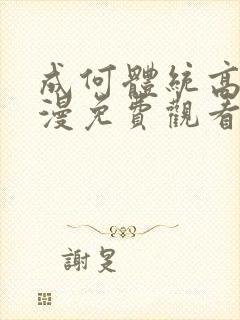 成何體統高
漫免費觀看
謝旻